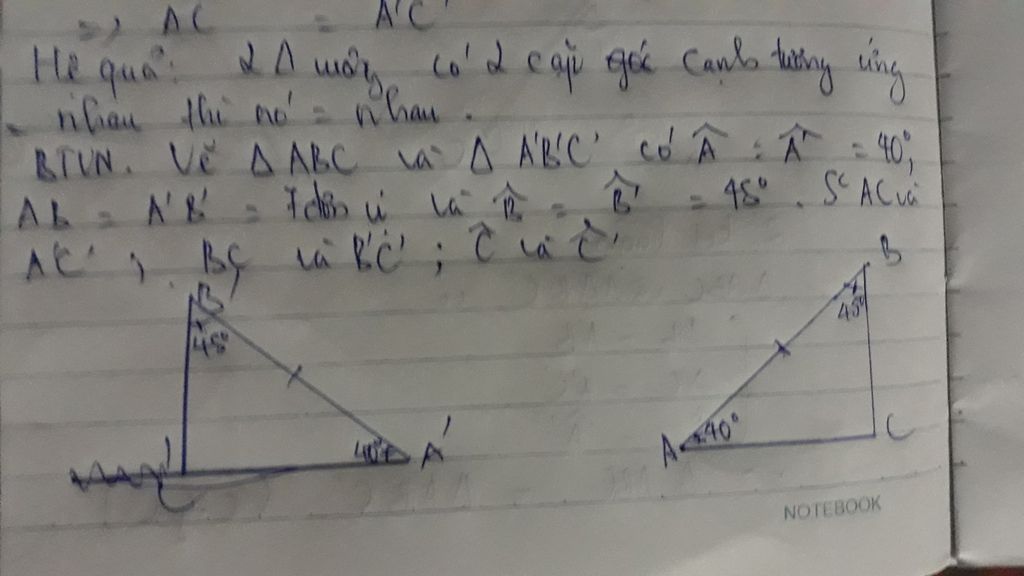 => AC = A'C'
Hệ quả: 2 Δ có 2 cặp góc cạnh tương ứng
= nhau thì nó = nhau.
BTVN. Vẽ Δ ABC và Δ A'B'C' có Â = Â' = 40°,
AB = A'B' = và B̂ = B̂' = 45°. S² AC và
A'C', BC và B'C'; Ĉ và Ĉ'
B'
45°
40°
A'
C'
B
45°
A
40°
C
NOTEBOOK